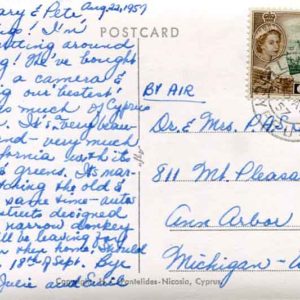 ary & Pete
Aug. 22, 1957
ngs! I'm
etting around
g! We've bought
a camera &
ng our "bestest"
much of Cyprus
. It's very beau-
and - very much
fornia with its
& greens. It's mar-
ching the old &
same time - autos
streets designed
narrow donkey
'll be leaving for
when home. Should
18th of Sept. Bye
Julie and
POSTCARD
BY AIR
Dr. & Mrs. P.A.S
811 Mt. Pleasa
Ann Arbor
Michigan - 
Mantelides - Nicosia, Cyprus